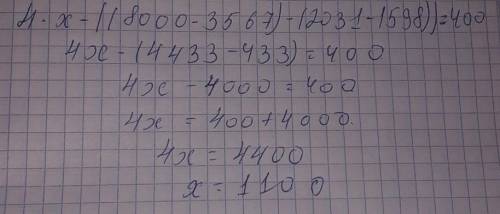 4·x-((8000-3567)-(2031-1598))=400
4x-(4433-433)=400
4x-4000=400
4x=400+4000.
4x=4400
x=1100